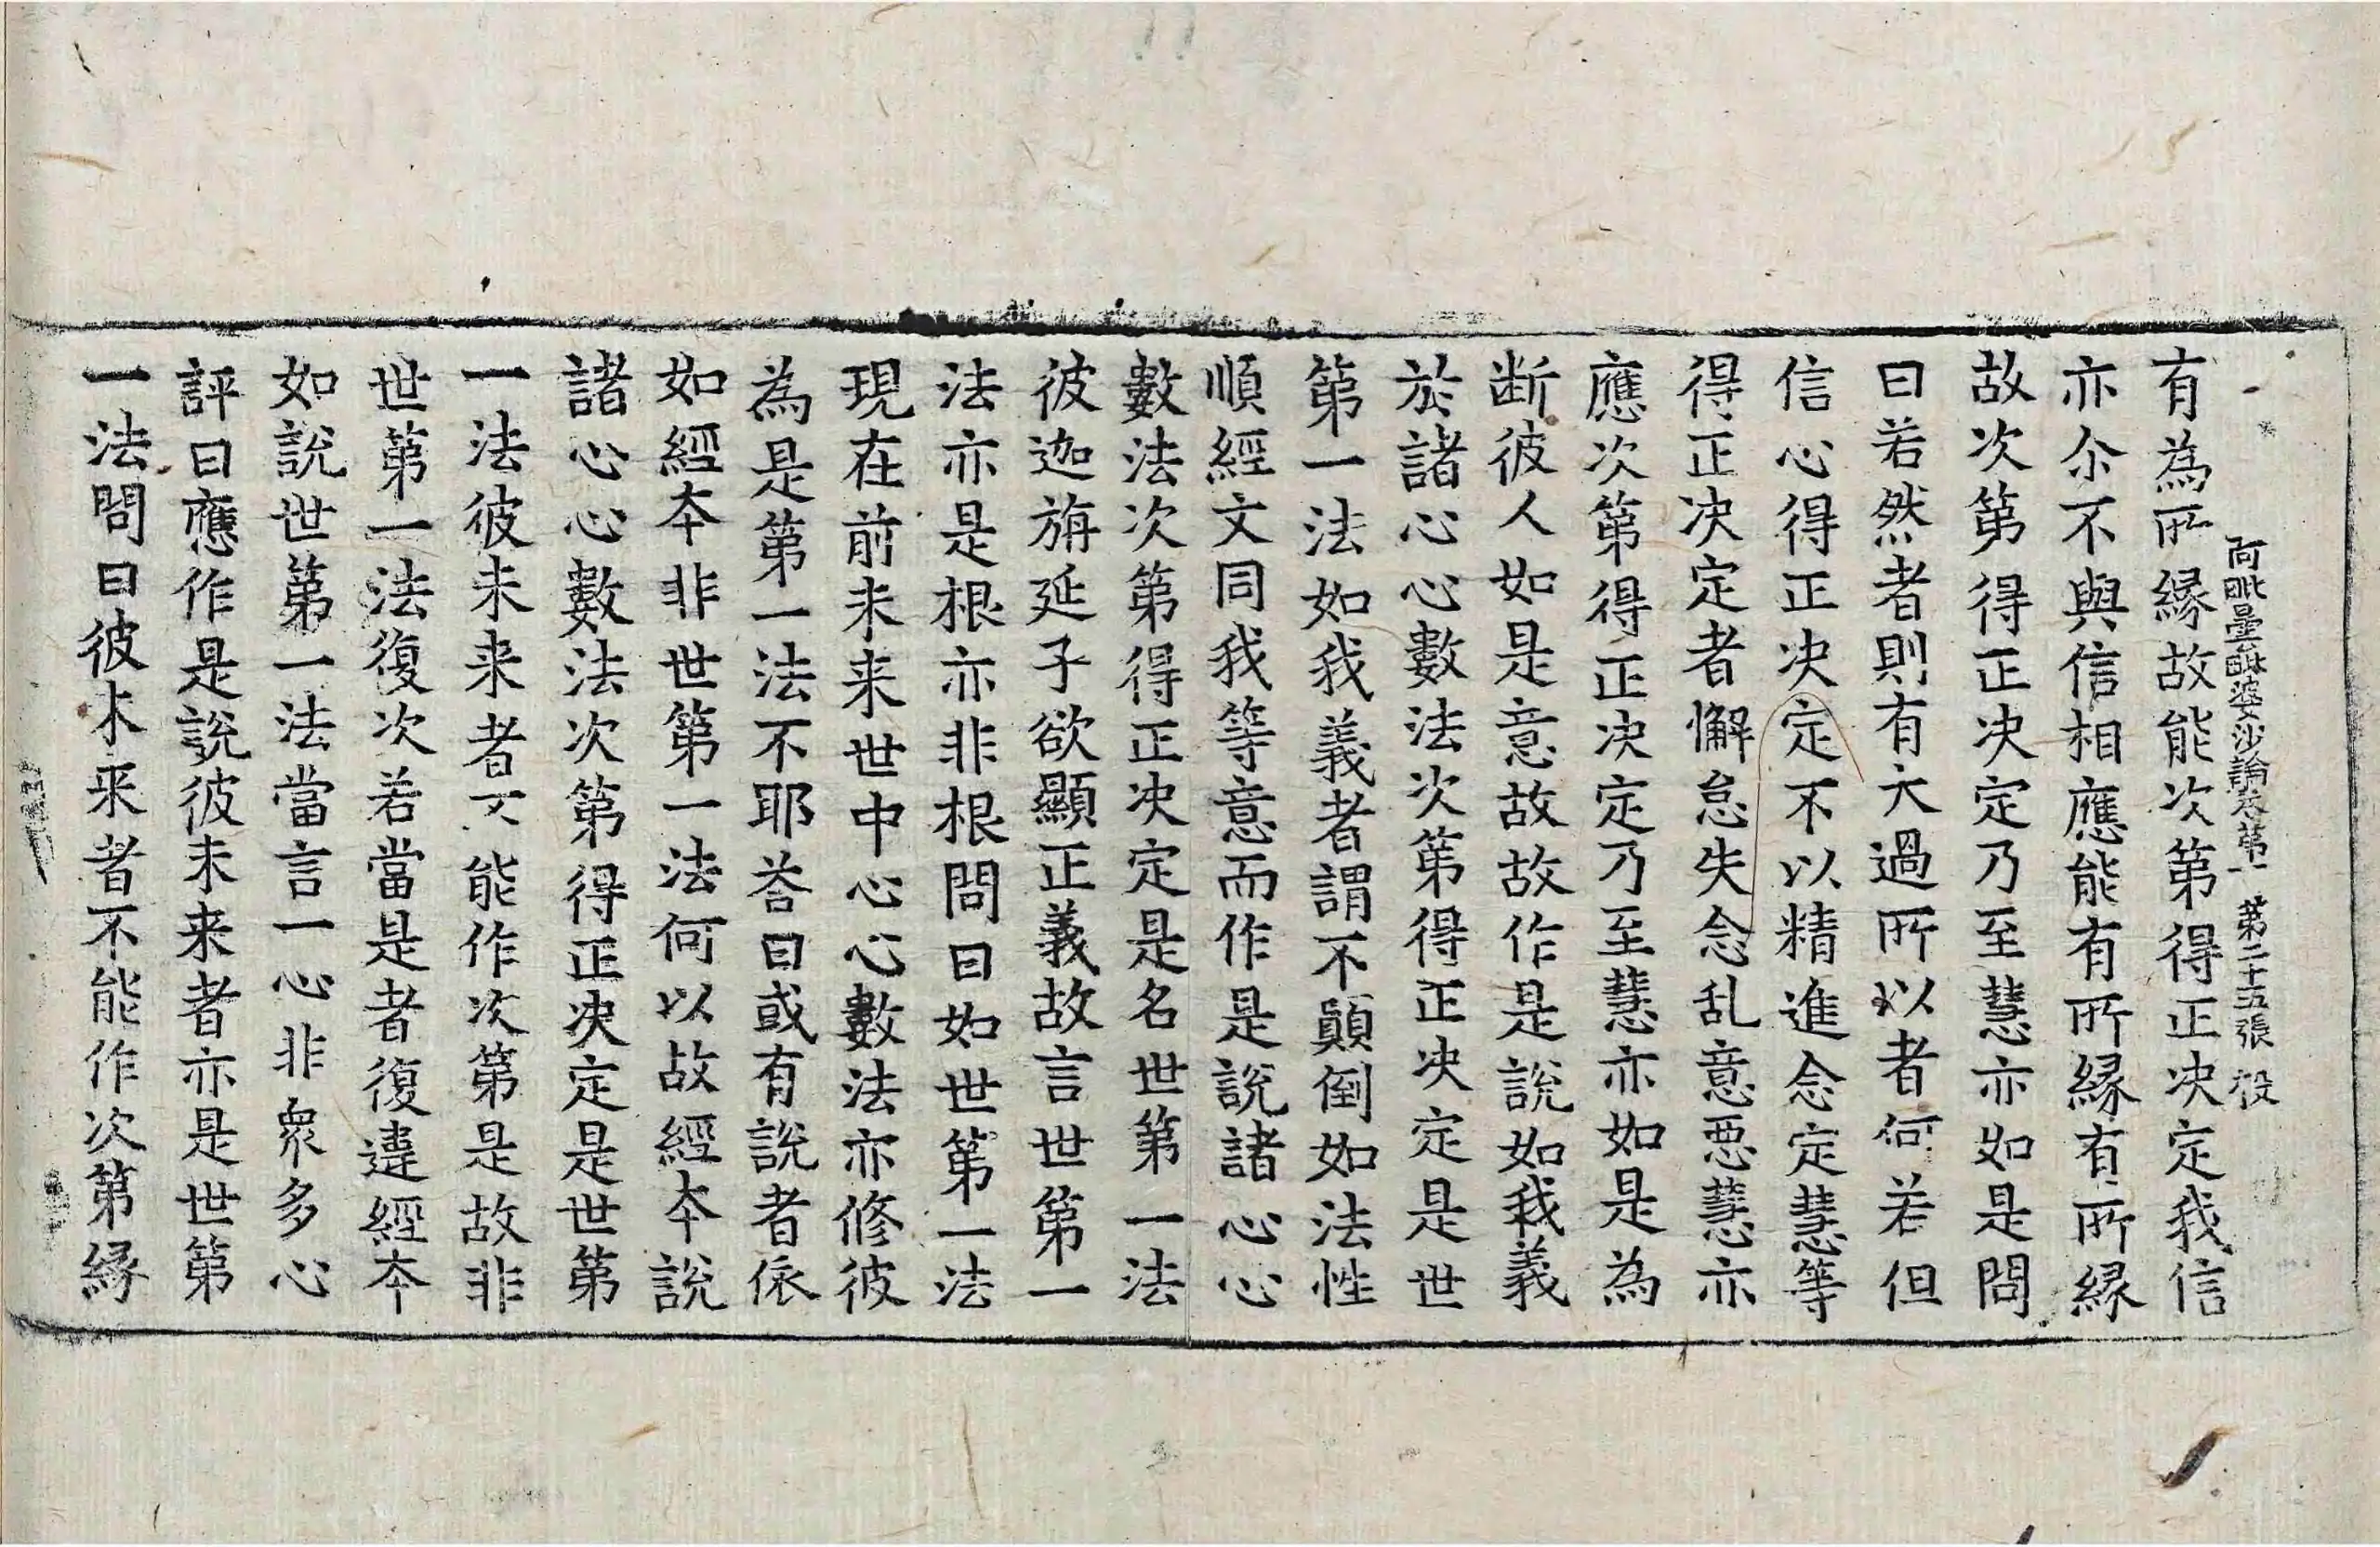 有為所縁故能次第得正决定我信
阿毗曇毗婆沙論卷第一 第二十五張 投
亦尒不與信相應能有所縁有所縁
故次第得正决定乃至慧亦如是問
曰若然者則有大過所以者何若但
信心得正决定不以精進念定慧等
得正决定者懈怠失念乱意惡慧亦
應次第得正决定乃至慧亦如是為
断彼人如是意故故作是說如我義
於諸心心數法次第得正决定是世
第一法如我義者謂不顛倒如法性
順經文同我等意而作是說諸心心
數法次第得正决定是名世第一法
彼迦旃延子欲顯正義故言世第一
法亦是根亦非根問曰如世第一法
現在前未来世中心心數法亦修彼
為是第一法不耶荅曰或有說者依
如經本非世第一法何以故經本說
諸心心數法次第得正决定是世第
一法彼未来者不能作次第是故非
世第一法復次若當是者復違經本
如說世第一法當言一心非衆多心
評曰應作是說彼未来者亦是世第
一法問曰彼未来者不能作次第縁